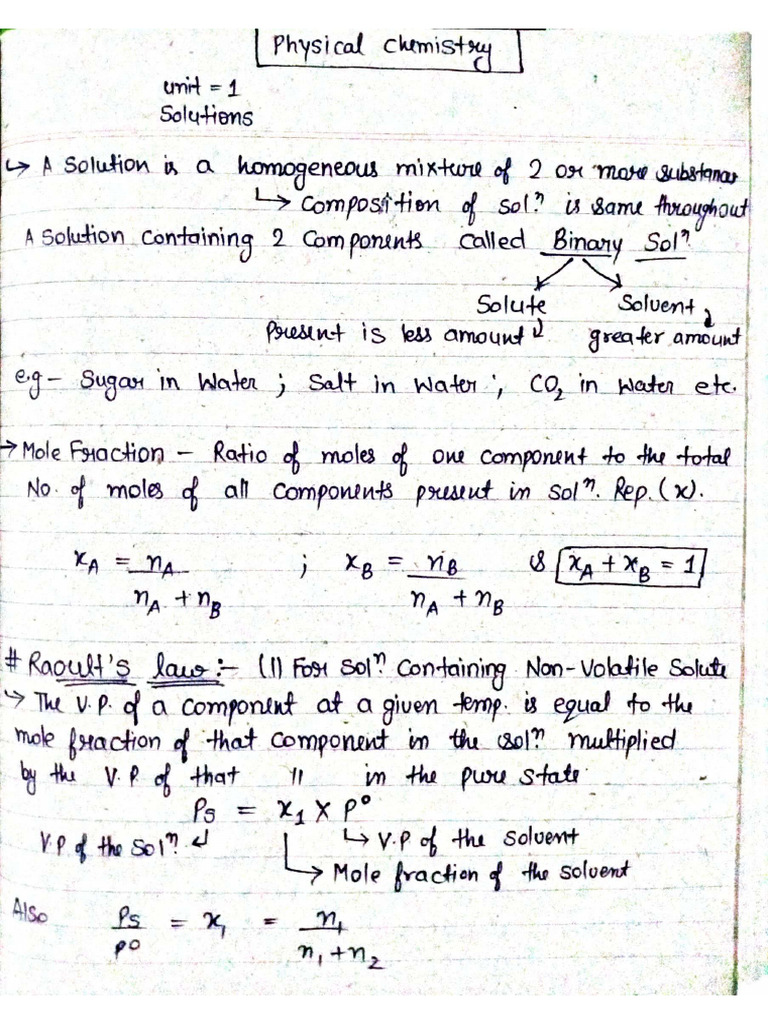 Physical Chemistry
unit = 1
Solutions
↳ A Solution is a homogeneous mixture of 2 or more substances
↳ Composition of solⁿ. is same throughout
A Solution Containing 2 Components called Binary Solⁿ.
Solute Solvent
Present is less amount greater amount
e.g - Sugar in Water ; Salt in Water ; CO₂ in water etc.
→ Mole Fraction - Ratio of moles of one component to the total
No. of moles of all components present in solⁿ. Rep. (x).
x_A = n_A / (n_A + n_B) ; x_B = n_B / (n_A + n_B) & x_A + x_B = 1
# Raoult's law :- (1) For Solⁿ. Containing Non-Volatile Solute
↳ The V.P. of a component at a given temp. is equal to the
mole fraction of that component in the solⁿ. multiplied
by the V.P. of that 〃 in the pure state.
Ps = x₁ X P⁰
V.P. of the Solⁿ. ↲ ↳ V.P. of the solvent
↳ Mole fraction of the solvent
Also Ps / P⁰ = x₁ = n₁ / (n₁ + n₂)